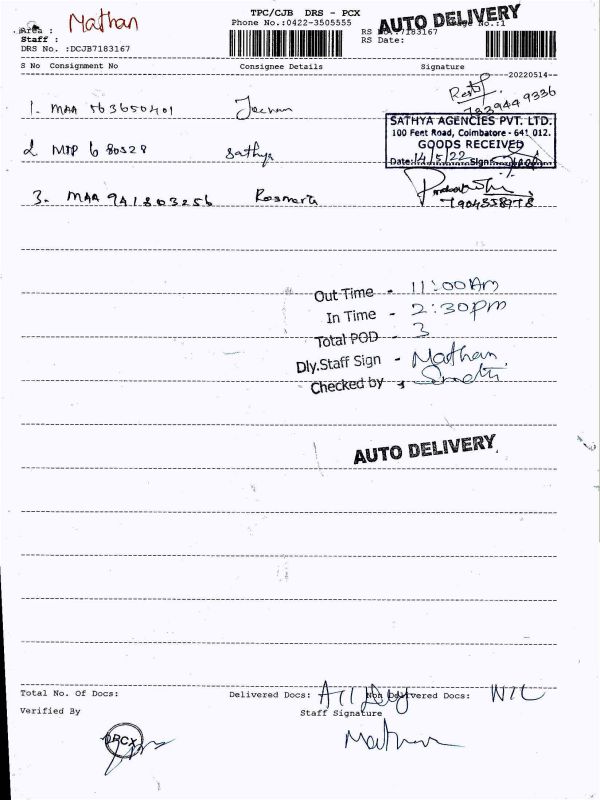 TPC/CJB DRS - PCX
Mathan
Phone No.:0422-3505555
AUTO DELIVERY
Area :
Staff :
RS No.:7183167
No.:1
DRS No. :DCJB7183167
RS Date:
S No Consignment No Consignee Details Signature
20220514
1. MAA 563650401
7839449336
SATHYA AGENCIES PVT. LTD.
100 Feet Road, Coimbatore - 641 012.
GOODS RECEIVED
2 MTP 680528 Sathya
Date: 14/5/22 Sign
3. MAA 941803256
7904358978
Out Time - 11:00 Am
In Time - 2:30pm
Total POD - 3
Dly.Staff Sign - Mathan
Checked by
AUTO DELIVERY
Total No. Of Docs: Delivered Docs: All Dly Non Delivered Docs: NIL
Verified By Staff Signature
PCX
Mathan